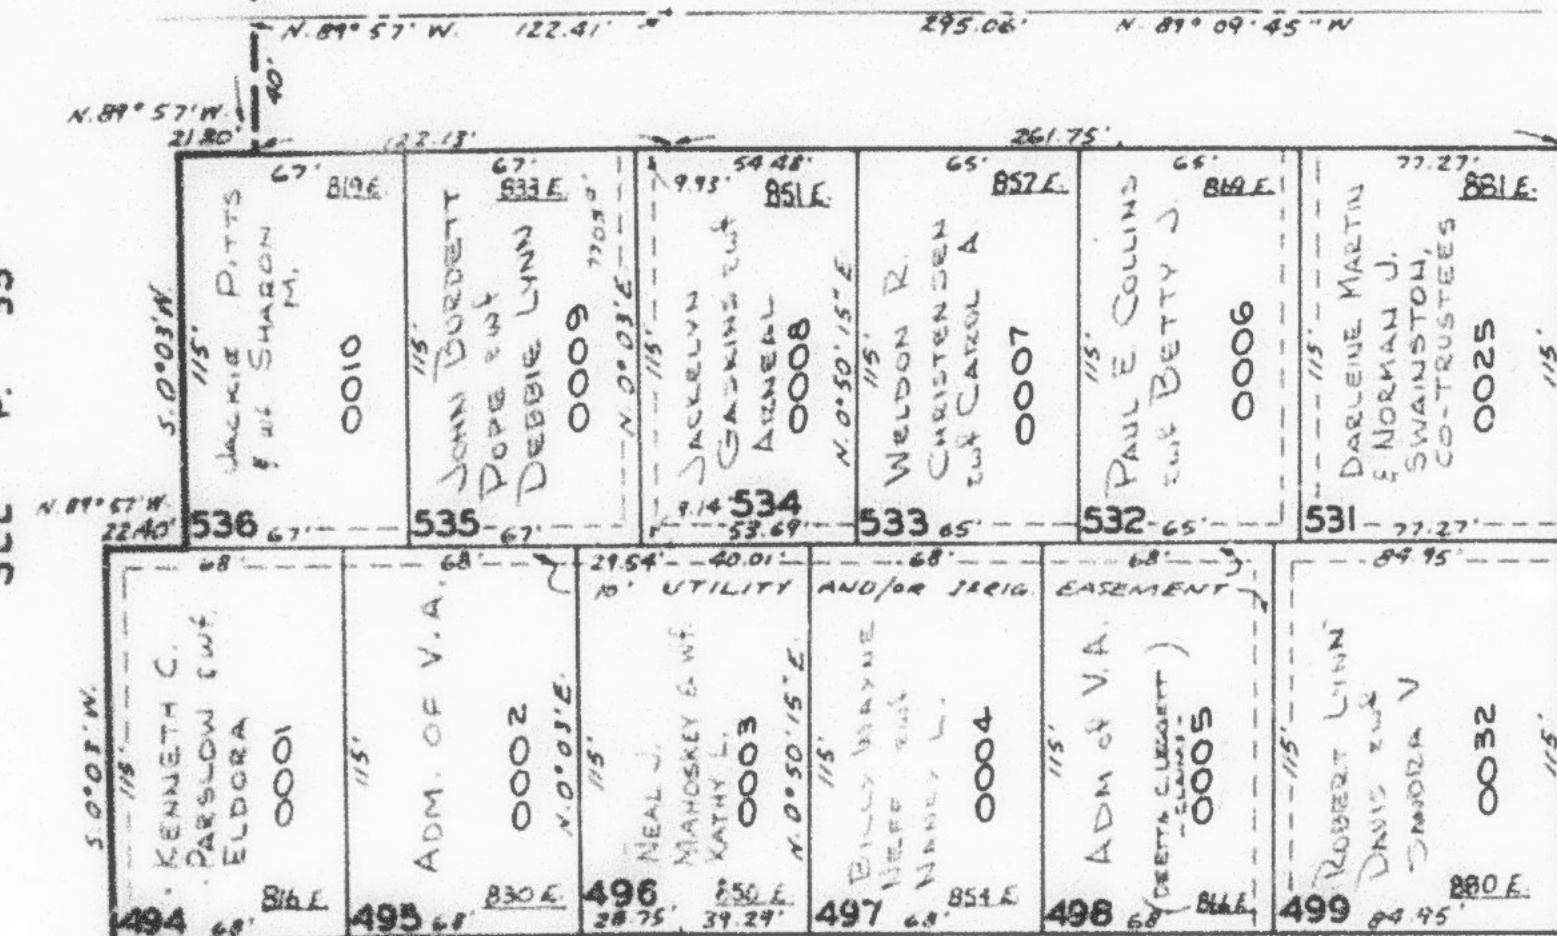 N. 89° 57' W. 122.41' 295.06' N. 89° 09' 45" W
40'
N. 89° 57' W.
21.80' 122.13' 261.75'
67'
819 E.
JACKIE PITTS
& wf SHARON
M.
0010
S. 0° 03' W.
115'
536
67'
67'
833 E.
JOHN BURDETT
POPE & wf
DEBBIE LYNN
0009
N. 0° 03' E.
115'
535
67'
54.48'
9.93'
851 E.
JACKELYN
GASKINS & wf
ARNEAL
0008
N. 0° 50' 15" E
115'
9.14'
534
53.69'
65'
857 E.
WELDON R.
CHRISTENSEN
& wf CAROL A
0007
115'
533
65'
65'
869 E.
PAUL E COLLINS
& wf BETTY J
0006
115'
532
65'
77.27'
881 E.
DARLEINE MARTIN
& NORMAN J.
SWAINSTON,
CO-TRUSTEES
0025
115'
115'
531
77.27'
N. 89° 57' W.
22.40'
68' 68' 29.54' 40.01' 68' 68' 84.95'
10' UTILITY AND/OR IRRIG. EASEMENT
S. 0° 03' W.
115'
KENNETH C.
PARSLOW & wf
ELDORA
0001
816 E.
494
68'
115'
ADM. OF V.A.
0002
N. 0° 03' E.
830 E.
495
68'
115'
NEAL J.
MAHOSKEY & wf.
KATHY L.
0003
N. 0° 50' 15" E.
850 E.
496
28.75' 39.29'
115'
BILLY WAYNE
NEFF & wf
NANCY L.
0004
854 E.
497
68'
115'
ADM of V.A.
(DEETTA C. LEGGETT
- CLAIMS -
)
0005
866 E.
498
68'
115'
ROBERT LYNN
DAVIS & wf
SANDRA V
0032
115'
880 E.
499
84.95'